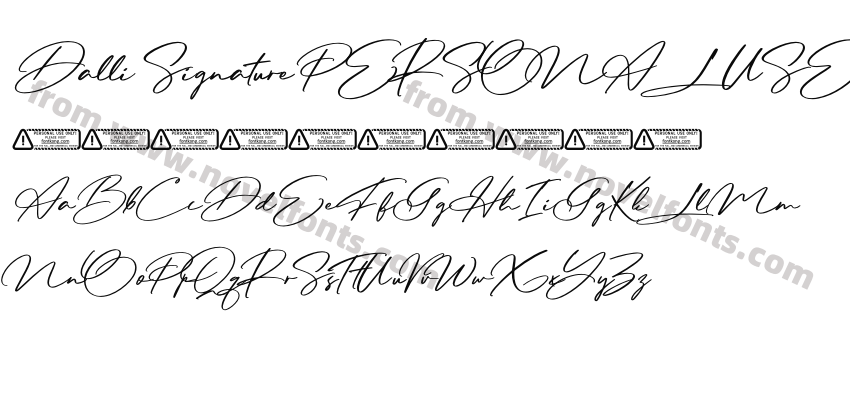 Dalli Signature PERSONAL USE
PERSONAL USE ONLY! PLEASE VISIT fontkong.com
PERSONAL USE ONLY! PLEASE VISIT fontkong.com
PERSONAL USE ONLY! PLEASE VISIT fontkong.com
PERSONAL USE ONLY! PLEASE VISIT fontkong.com
PERSONAL USE ONLY! PLEASE VISIT fontkong.com
PERSONAL USE ONLY! PLEASE VISIT fontkong.com
PERSONAL USE ONLY! PLEASE VISIT fontkong.com
PERSONAL USE ONLY! PLEASE VISIT fontkong.com
PERSONAL USE ONLY! PLEASE VISIT fontkong.com
PERSONAL USE ONLY! PLEASE VISIT fontkong.com
AaBbCcDdEeFfGgHhIiGgKkLlMm
NnOoPpQqRrSsTtUuVvWwXxYyZz
from www.novelfonts.com
from www.novelfonts.com